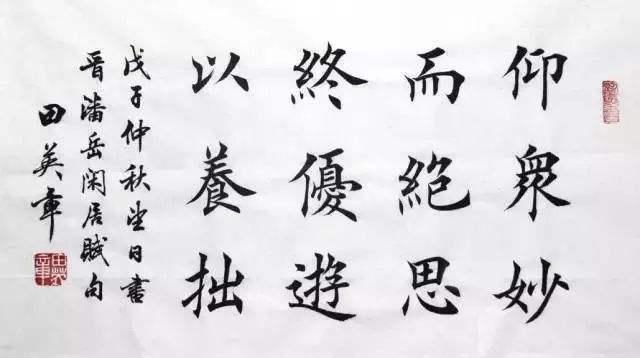 仰眾妙
而絶思
終優遊
以養拙
戊子仲秋望日書
晉潘岳閑居賦句
田英章
田英章